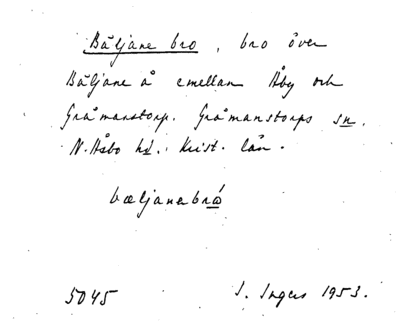 Bäljane bro, bro över
Bäljane å emellan Åby och
Gråmanstorp. Gråmanstorps sn.
N. Åsbo hd. Krist. län.
bæljanebrå
5045 I. Ingers 1953.